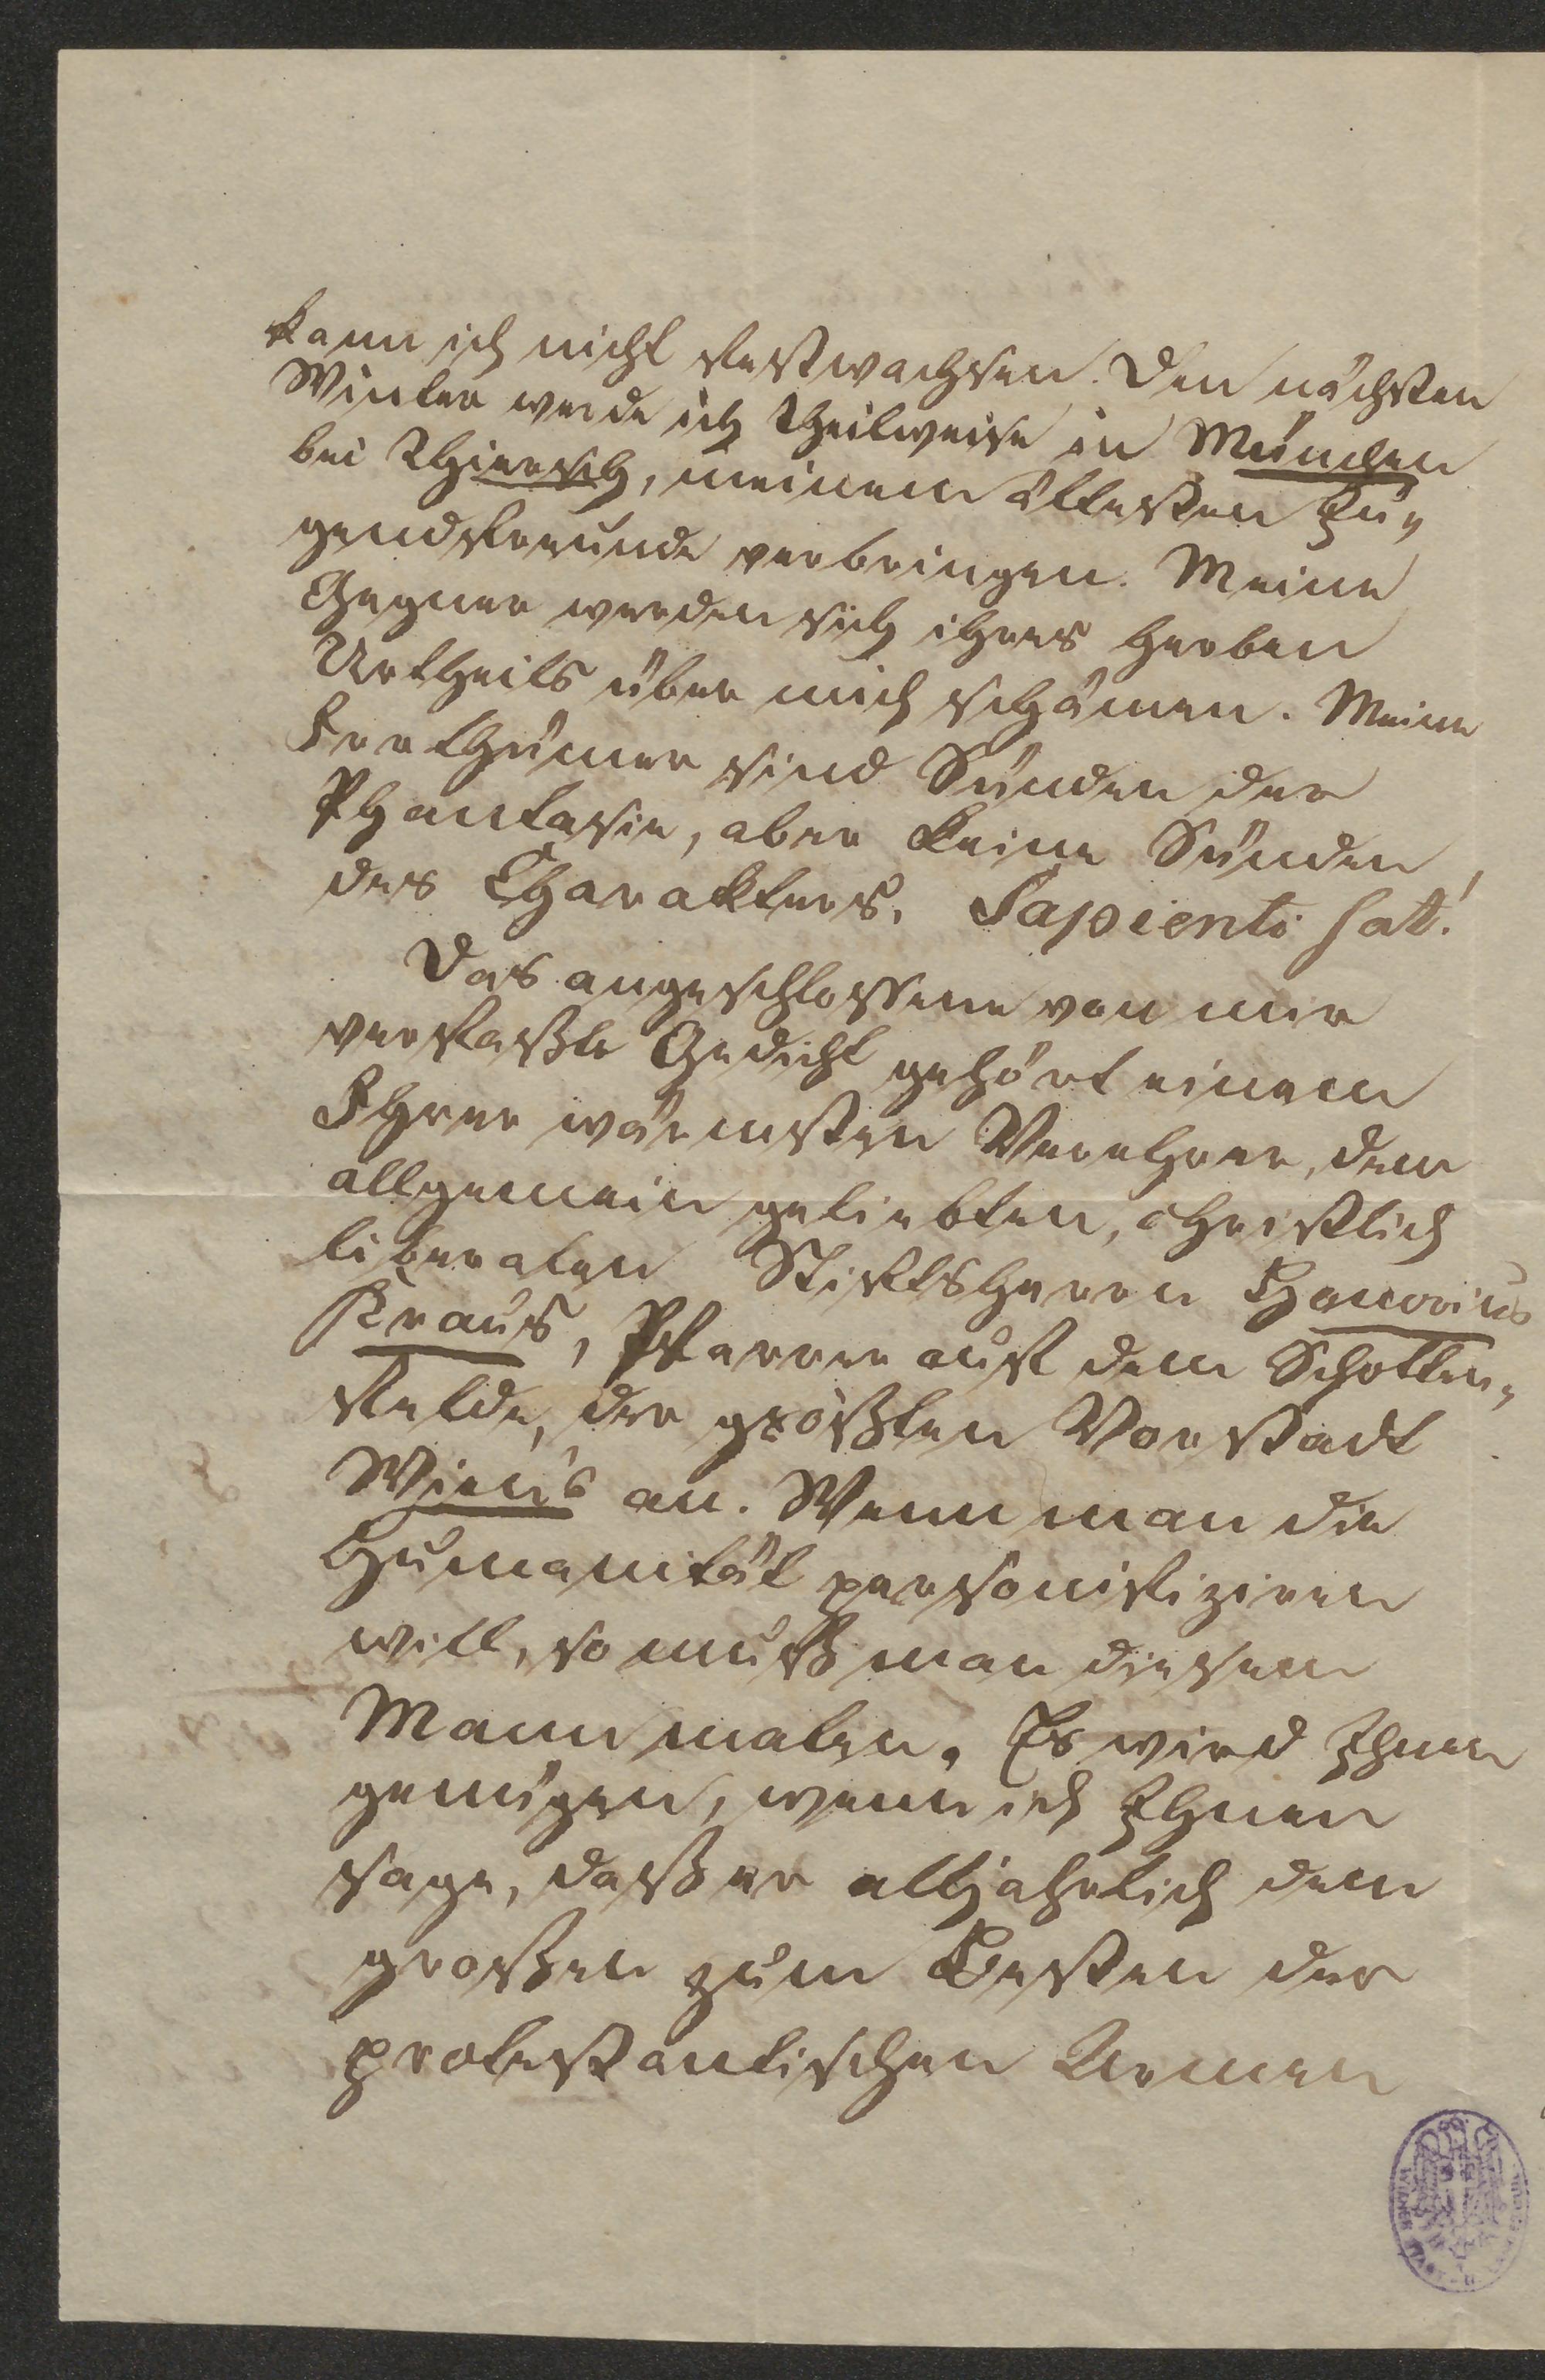 kann ich nicht festwachsen. Den nächsten
Winter werde ich theilweise in München
bei Thiersch, meinem ältesten Ju-
gendfreunde verbringen. Meine
Gegner werden sich ihres herben
Urtheils über mich schämen. Meine
Irrthümer sind Sünden der
Phantasie, aber keine Sünden
des Charakters. Sapienti sat!
Das angeschlossene von mir
verfaßte Gedicht gehört einem
Ihrer wärmsten Verehrer, dem
allgemein geliebten, christlich
liberalen Stiftsherrn Honorius
Kraus, Pfarrer auf dem Schotten-
felde, der größten Vorstadt
Wien's an. Wenn man die
Humanität personifiziren
will, so muß man diesen
Mann malen. Es wird Ihnen
genügen, wenn ich Ihnen
sage, daß er alljährlich den
großen zum Besten der
protestantischen Armen